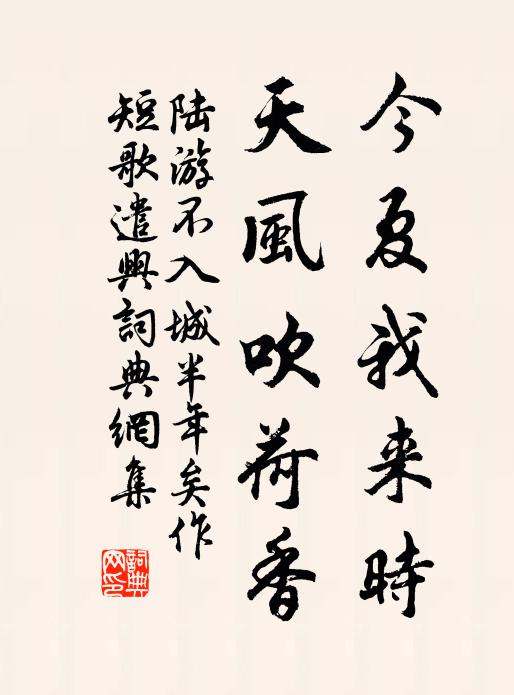 今夏我来時
天風吹荷香
陆游不入城半年矣作
短歌遣興詞典網集
詞典
网印